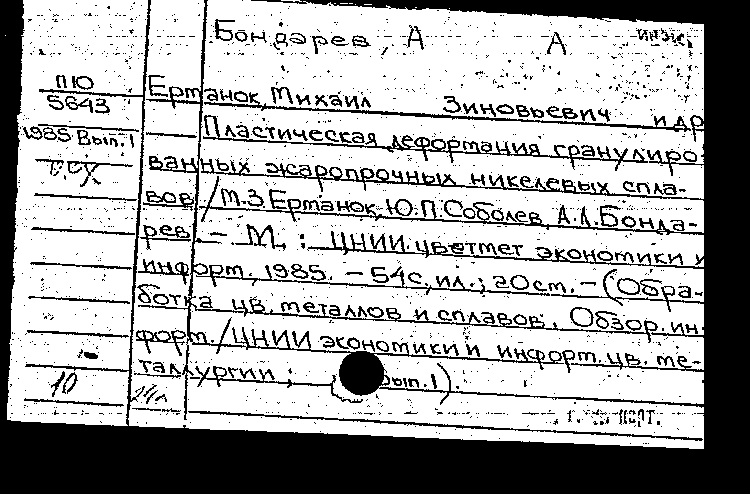 Бондарев, А А
ПЮ
5643
1985 Вып.1
Ерманок, Михаил Зиновьевич и др
Пластическая деформация гранулиро-
ванных жаропрочных никелевых спла-
вов / М.З Ерманок, Ю.П.Соболев, А.А.Бонда-
рев. – М. : ЦНИИ.цветмет экономики и
информ., 1985. – 54с, ил.; 20см. – (Обра-
ботка цв. металлов и сплавов. Обзор. ин-
форм. / ЦНИИ экономики и информ. цв. ме-
таллургии ; вып.1).
10
24л